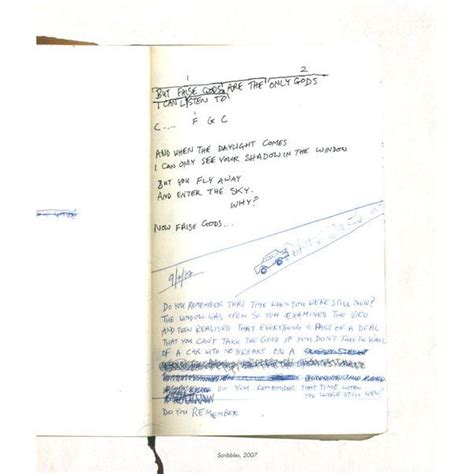 1 2
BUT FALSE GODS ARE THE ONLY GODS
I CAN LISTEN TO
C.... F G C
AND WHEN THE DAYLIGHT COMES
I CAN ONLY SEE YOUR SHADOW IN THE WINDOW
BUT YOU FLY AWAY
AND ENTER THE SKY.
WHY?
NOW FALSE GODS...
DO YOU REMEMBER THAT TIME WHEN YOU WERE STILL NEW?
THE WINDOW WAS OPEN SO YOU EXAMINED THE VIEW
AND THEN REALISED THAT EVERYTHING'S PART OF A DEAL
THAT YOU CAN'T TAKE THE GOOD IF YOU DON'T TAKE THE WHEEL
OF A CAR WITH NO BREAKS ON A
DO YOU REMEMBER THAT TIME WHEN
YOU WERE STILL NEW
DO YOU REMEMBER
Scribbles, 2007